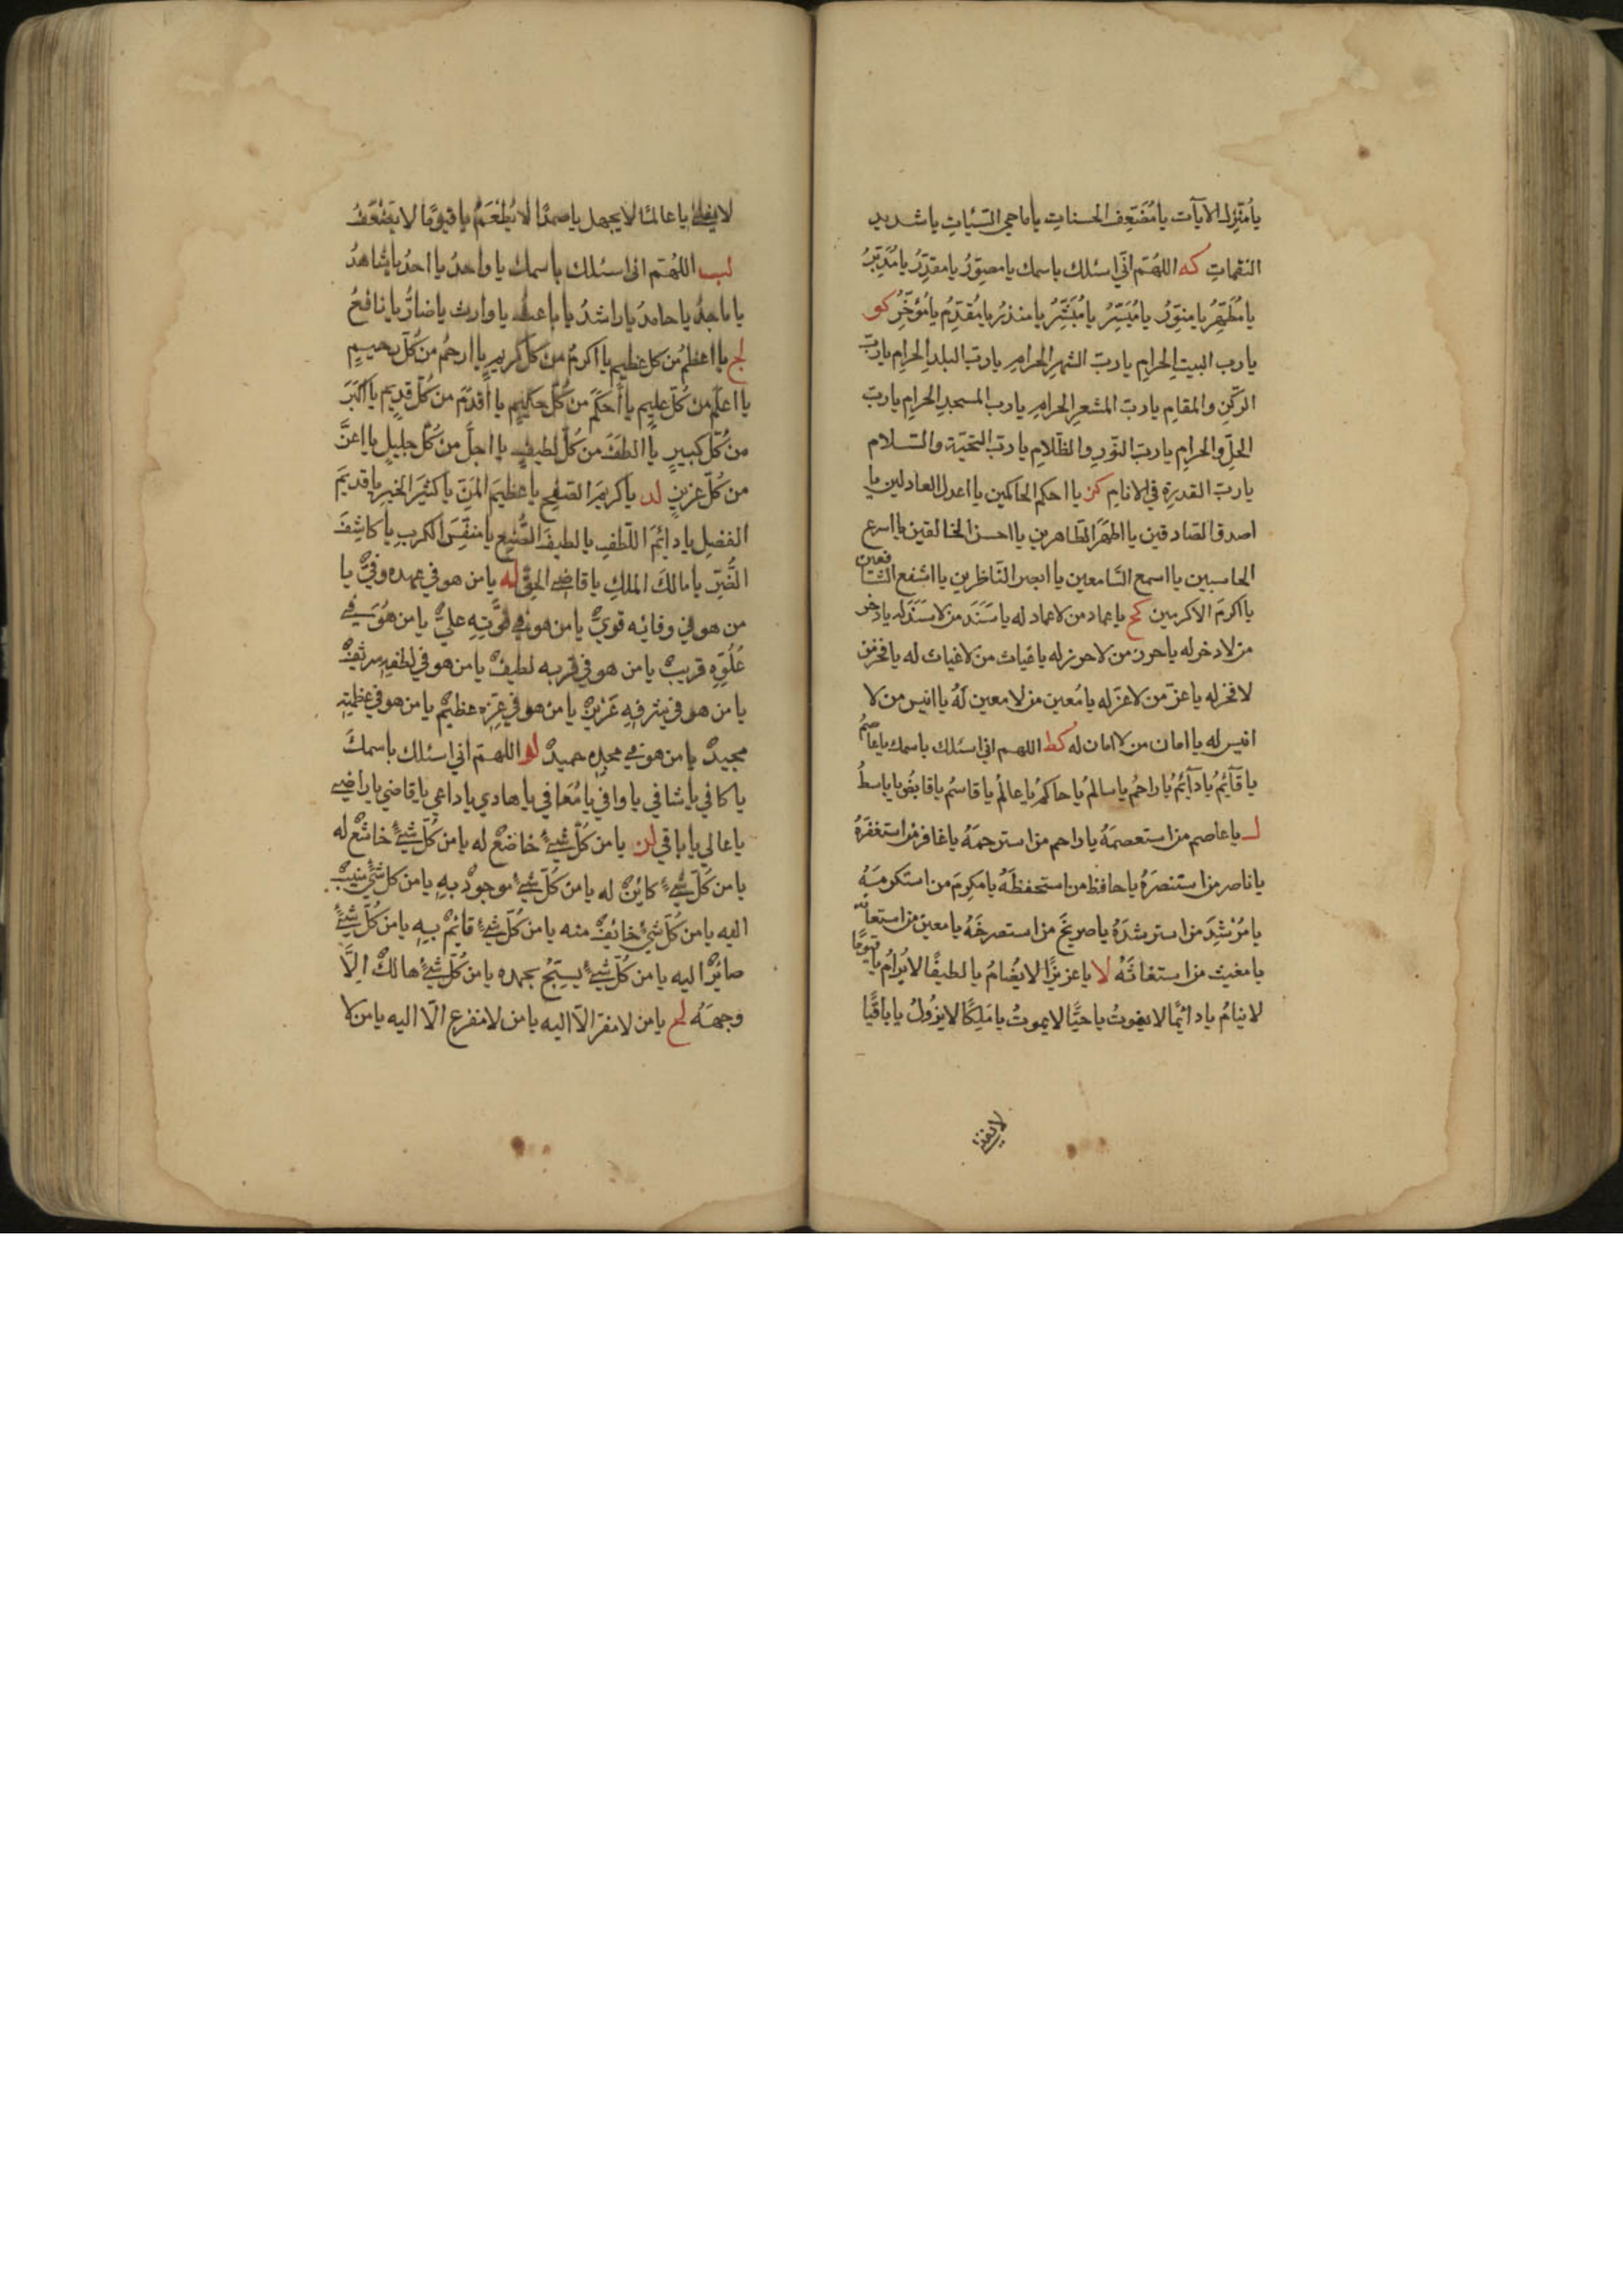 يا مُنَزِّلَ الآيآت يا مُضَعِّفَ الحسناتِ يا ماحي السّيّئاتِ يا شديد
النقماتِ كه اللهُمّ انّي اسئلك باسمك يا مصوّرُ يا مقدّرُ يا مُدَبِّرُ
يا مُطَهِّرُ يا منوّرُ يا مُيَسِّرُ يا مُبَشِّرُ يا منذرُ يا مُقدّمُ يا مُؤَخِّرُ كو
يا رب البيتِ الحرامِ يا ربّ الشهرِ الحرامِ يا ربّ البلدِ الحرامِ يا ربّ
الركنِ والمقامِ يا ربّ المشعرِ الحرامِ يا رب المسجدِ الحرامِ يا ربّ
الحلِّ والحرامِ يا ربّ النّورِ والظّلامِ يا ربّ التحيّة والسّلام
يا ربّ القدرةِ في الانامِ كز يا احكم الحاكمين يا اعدل العادلين يا
اصدق الصّادقين يا اطهَرَ الطّاهرين يا احسن الخالقين يا اسرع
الحاسبين يا اسمع السّامعين يا ابصر النّاظرين يا اشفع الشّافعين
يا اكرمَ الاكرمين كح يا عماد من لا عماد له يا سَنَدَ من لا سَنَدَ له يا ذخر
من لا ذخر له يا حرز من لا حرز له يا غياث من لا غياث له يا فخر من
لا فخر له يا عزّ من لا عزّ له يا مُعين من لا معين لَهُ يا انيس من لا
انيس له يا امان من لا امان له كط اللهم اني اسئلك باسمك يا عاصمُ
يا قآئِمُ يا دآئِمُ يا راحمُ يا سالمُ يا حاكمُ يا عالمُ يا قاسمُ يا قابضُ يا باسطُ
ل يا عاصم من استعصمَهُ يا راحم من استرحمَهُ يا غافر من استغفرَهُ
يا ناصر من استنصرَهُ يا حافظ من استحفظَهُ يا مكرمَ من استكرمَهُ
يا مُرْشِدَ من استرشدَهُ يا صريخَ من استصرخَهُ يا معين من استعانَه
يا مغيث من استغاثَهُ لا يا عزيزًا لا يُضامُ يا لطيفًا لا يُرامُ يا قيّومًا
لا ينامُ يا دائمًا لا يفوتُ يا حيًّا لا يموتُ يا مَلِكًا لا يزُولُ يا باقيًا
لا يفنى
لا يفنى يا عالمًا لا يجهل يا صمدًا لا يُطْعَمُ يا قيوّمًا لا يَضْعَفُ
لب اللهُمّ انى اسئلك باسمك يا واحدُ يا احدُ يا شاهدُ
يا ماجدُ يا حامدُ يا راشدُ يا باعثُ يا وارث يا ضارُّ يا نافعُ
لج يا اعظمُ من كل عظيم يا اكرمُ من كلّ كريمٍ يا ارحمُ من كُلّ رحيمٍ
يا اعلمَ من كُلّ عليم يا أحكمَ من كُلّ حكيم يا اقدمَ من كُلّ قديم يا أكبَرَ
من كُلّ كبيرٍ يا الطفَ من كُلّ لطيفٍ يا اجلَّ من كُلّ جليلٍ يا اعزَّ
من كُلّ عزيزٍ لد يا كريمَ الصّفحِ يا عظيمَ المَنِّ يا كثيرَ الخيرِ يا قديمَ
الفضلِ يا دائمَ اللّطفِ يا لطيفَ الصُّنعِ يا منفّسَ الكربِ يا كاشفَ
الضُّرِّ يا مالكَ الملكِ يا قاضي الحقّ له يا من هو في عهده وفيٌّ يا
من هو في وفائه قويٌّ يا من هو في قوّتِهِ عليٌّ يا من هُوَ في
عُلُوِّهِ قريبٌ يا من هو في قربه لطيفٌ يا من هو في لطفه شريفٌ
يا من هو في شرفهِ عَزيزٌ يا من هو في عِزّهِ عظيمٌ يا من هو في عظمته
مجيدٌ يا من هو في مجدِه حميدٌ لو اللهمّ اني اسئلك باسمكَ
يا كافي يا شافي يا وافي يا مُعَافي يا هادي يا داعي يا قاضي يا راضي
يا عالي يا باقي لز يا من كُلّ شيءٍ خاضعٌ له يا من كُلّ شيءٍ خاشعٌ له
يا من كُلّ شيءٍ كائنٌ له يا من كُلّ شيءٍ موجودٌ بهِ يا من كل شيءٍ منيبٌ
اليه يا من كُلّ شيءٍ خائفٌ منه يا من كُلّ شيءٍ قائمٌ بهِ يا من كُلّ شيءٍ
صائرٌ اليه يا من كُلّ شيءٍ يسبّحُ بحمده يا من كُلّ شيءٍ هالكٌ الَّا
وجهَهُ لح يا من لا مفرّ الّا اليه يا من لا مفزع الّا اليه يا من لا